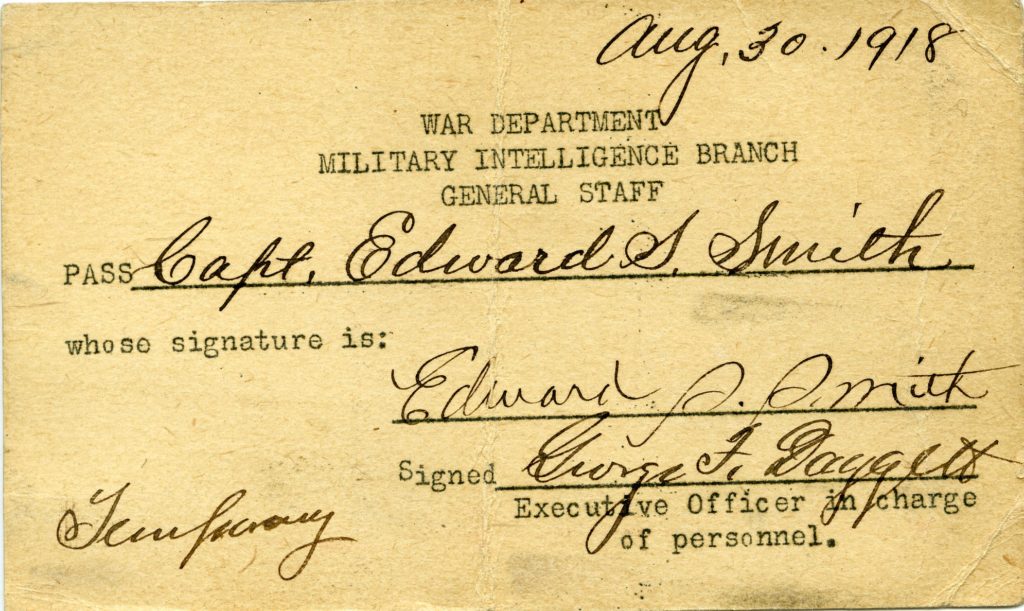 Aug, 30. 1918
WAR DEPARTMENT
MILITARY INTELLIGENCE BRANCH
GENERAL STAFF
PASS Capt. Edward S. Smith
whose signature is:
Edward S. Smith
Signed George F. Daggett
Executive Officer in charge
of personnel.
Temporary